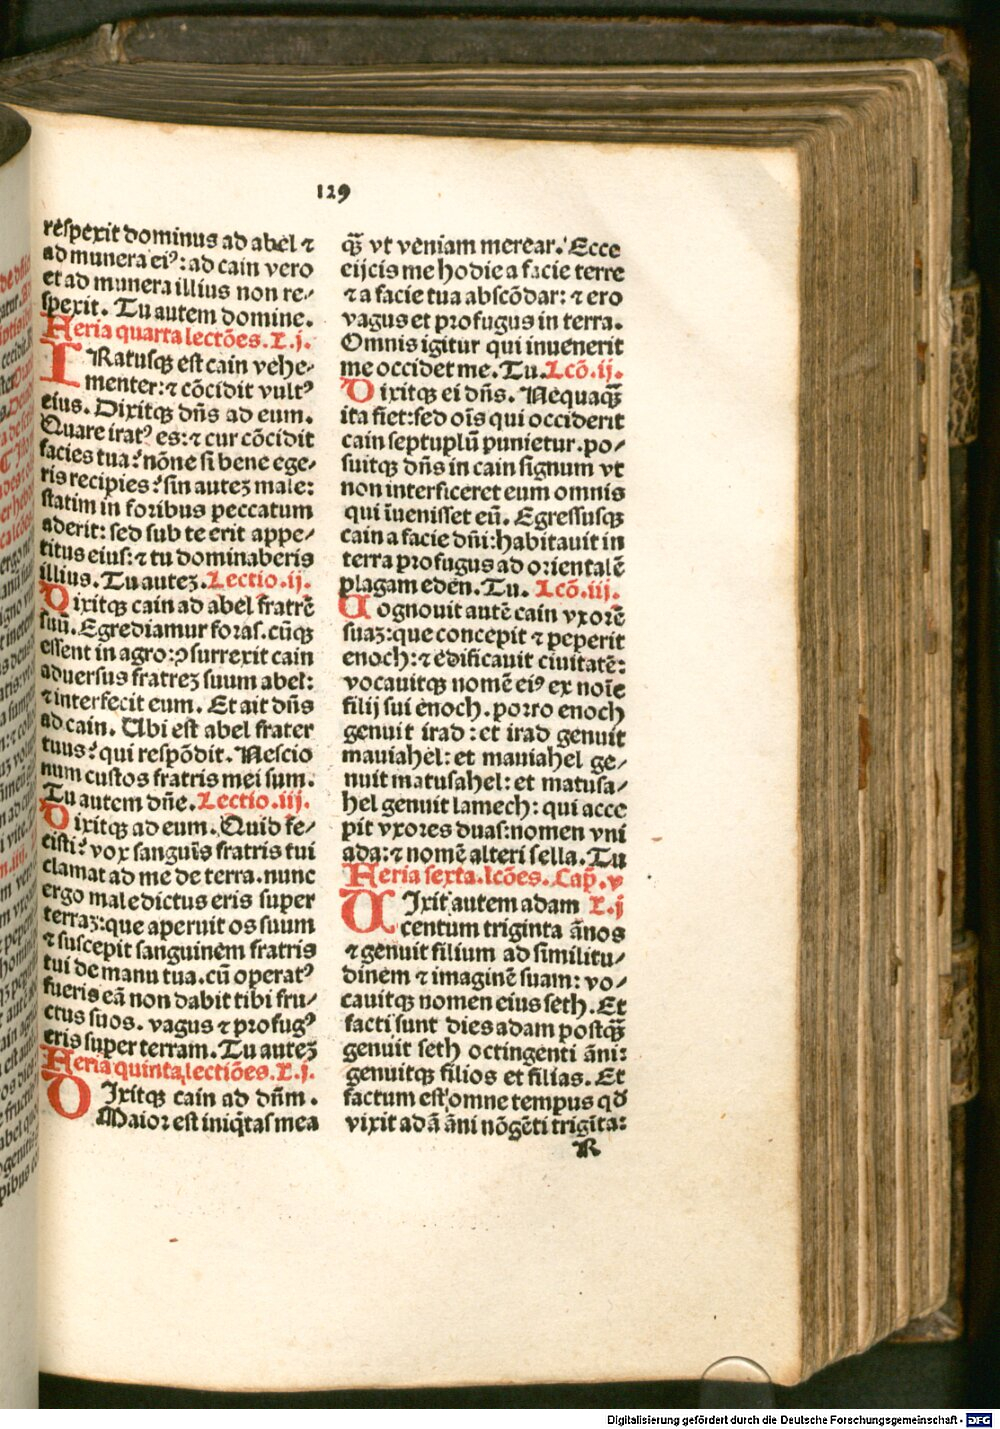 129
respexit dominus ad abel ⁊
ad munera eiꝰ: ad cain vero
et ad munera illius non re⸗
spexit. Tu autem domine.
Feria quarta lectōes. L. j.
IRatusqꝫ est cain vehe⸗
menter: ⁊ cōcidit vultꝰ
eius. Dixitqꝫ dn̄s ad eum.
Quare iratꝰ es: ⁊ cur cōcidit
facies tua? nōne si bene ege⸗
ris recipies? sin auteꝫ male:
statim in foribus peccatum
aderit: sed sub te erit appe⸗
titus eius: ⁊ tu dominaberis
illius. Tu auteꝫ. Lectio. ij.
Dixitqꝫ cain ad abel fratrē
suū. Egrediamur foras. cūqꝫ
essent in agro: ꝯsurrexit cain
aduersus fratreꝫ suum abel:
⁊ interfecit eum. Et ait dn̄s
ad cain. Ubi est abel frater
tuus? qui respōdit. Nescio
num custos fratris mei sum.
Tu autem dn̄e. Lectio. iij.
Dixitqꝫ ad eum. Quid fe⸗
cisti? vox sanguīs fratris tui
clamat ad me de terra. nunc
ergo maledictus eris super
terraꝫ: que aperuit os suum
⁊ suscepit sanguinem fratris
tui de manu tua. cū operatꝰ
fueris eā non dabit tibi fru⸗
ctus suos. vagus ⁊ profugꝰ
eris super terram. Tu auteꝫ
Feria quinta lectiōes. L. j.
DIxitqꝫ cain ad dn̄m.
Maior est iniq̄tas mea
qꝫ̄ vt veniam merear. Ecce
eijcis me hodie a facie terre
⁊ a facie tua abscōdar: ⁊ ero
vagus et profugus in terra.
Omnis igitur qui inuenerit
me occidet me. Tu. Lcō. ij.
Dixitqꝫ ei dn̄s. Nequaqꝫ̄
ita fiet: sed oīs qui occiderit
cain septuplū punietur. po⸗
suitqꝫ dn̄s in cain signum vt
non interficeret eum omnis
qui īuenisset eū. Egressusqꝫ
cain a facie dn̄i: habitauit in
terra profugus ad orientalē
plagam eden. Tu. Lcō. iij.
Cognouit autē cain vxorē
suaꝫ: que concepit ⁊ peperit
enoch: ⁊ edificauit ciuitatē:
vocauitqꝫ nomē eiꝰ ex noīe
filij sui enoch. porro enoch
genuit irad: et irad genuit
mauiahel: et mauiahel ge⸗
nuit matusahel: et matusa⸗
hel genuit lamech: qui acce
pit vxores duas: nomen vni
ada: ⁊ nomē alteri sella. Tu
Feria sexta. lcōes. Cap̄. v
UIxit autem adam L. j
centum triginta ānos
⁊ genuit filium ad similitu⸗
dinem ⁊ imaginē suam: vo⸗
cauitqꝫ nomen eius seth. Et
facti sunt dies adam postqꝫ̄
genuit seth octingenti āni:
genuitqꝫ filios et filias. Et
factum est omne tempus qd̄
vixit adā āni nōgēti trigīta:
R
Digitalisierung gefördert durch die Deutsche Forschungsgemeinschaft - DFG